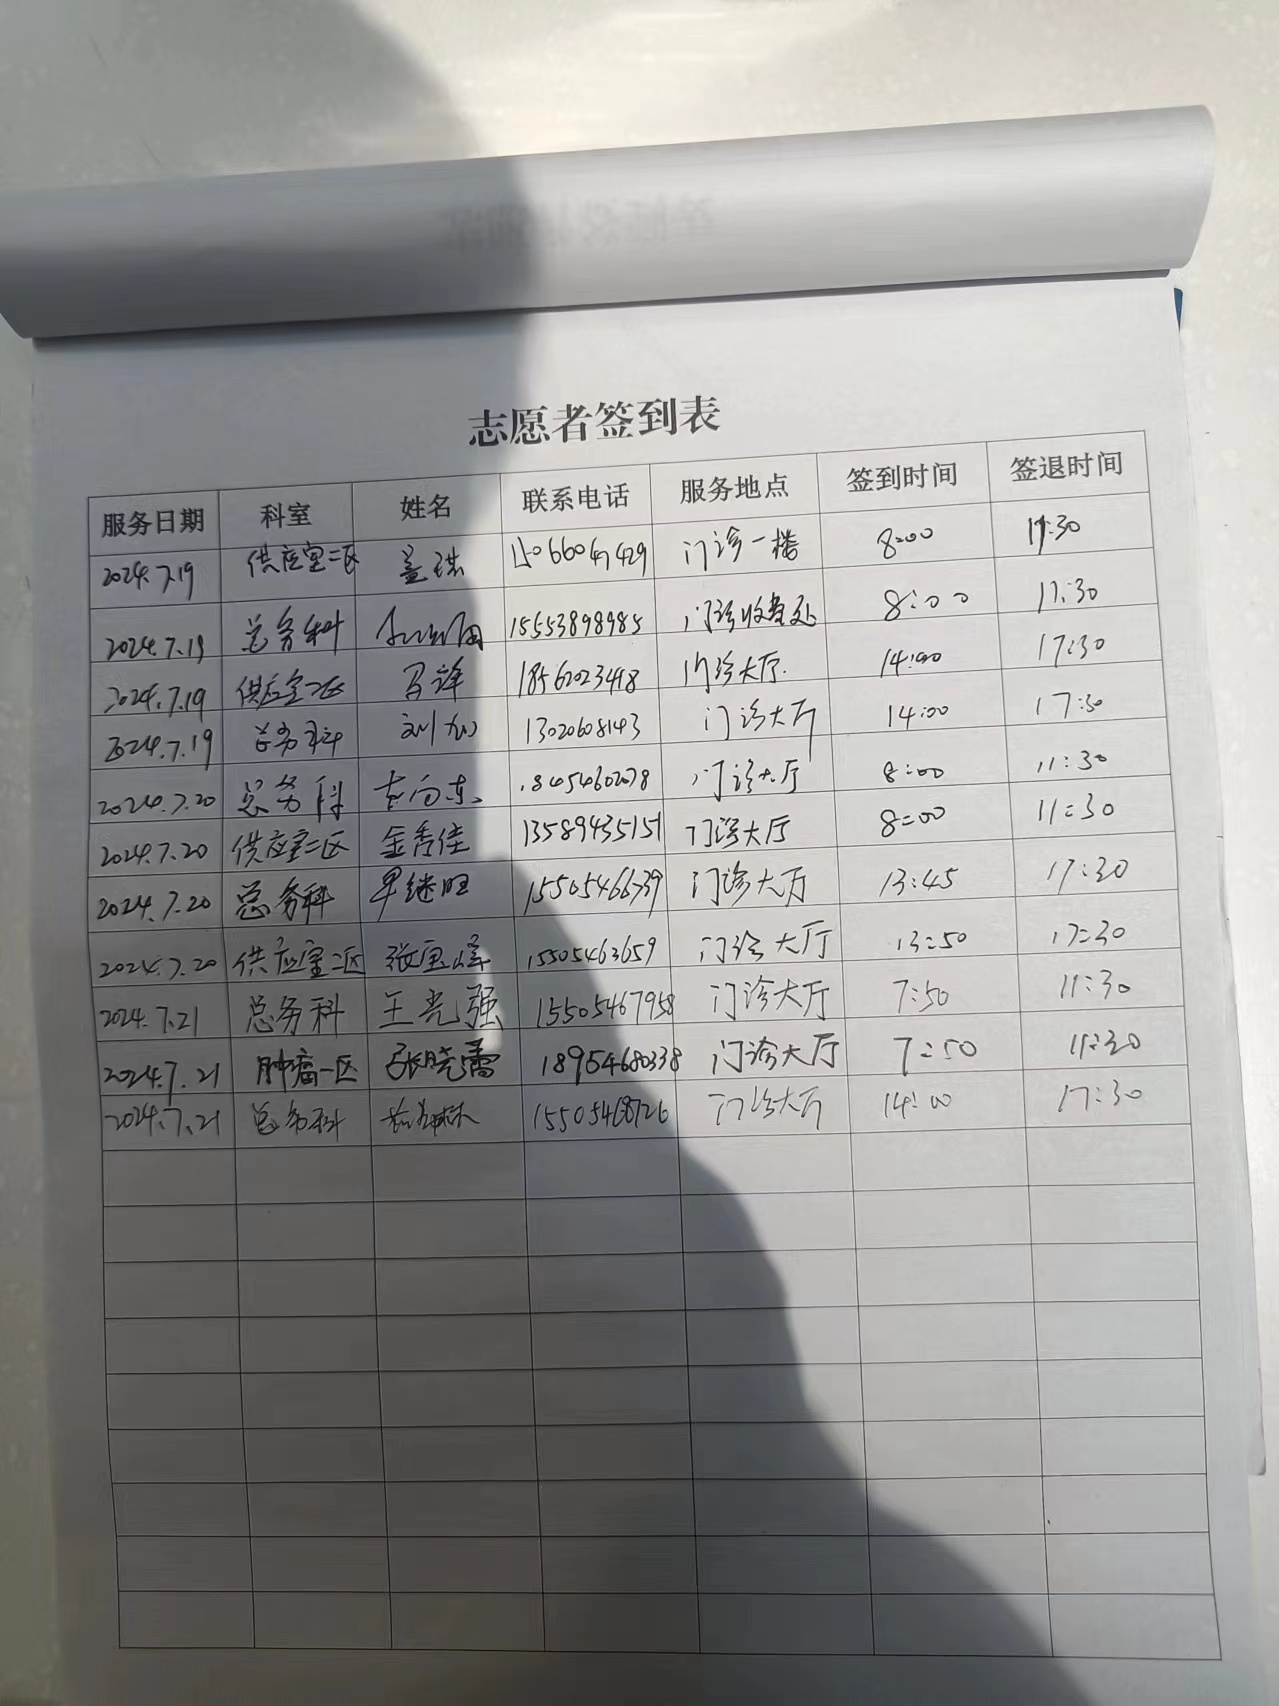 志愿者签到表
服务日期 科室 姓名 联系电话 服务地点 签到时间 签退时间
2024.7.19 供应室二区 盖琪 15066047429 门诊一楼 8:00 11:30
2024.7.19 总务科 15553898985 门诊收费处 8:00 11:30
2024.7.19 供应室二区 马锋 18562023418 门诊大厅. 14:00 17:30
2024.7.19 总务科 刘加 13020608143 门诊大厅 14:00 17:30
2024.7.20 总务科 18454602078 门诊大厅 8:00 11:30
2024.7.20 供应室二区 金秀佳 13589435151 门诊大厅 8:00 11:30
2024.7.20 总务科 单继旺 15505466739 门诊大厅 13:45 17:30
2024.7.20 供应室二区 15505463659 门诊大厅 13:50 17:30
2024.7.21 总务科 王光强 15505467958 门诊大厅 7:50 11:30
2024.7.21 肿瘤一区 张晓蕾 18954680338 门诊大厅 7:50 11:30
2024.7.21 总务科 15505468726 门诊大厅 14:00 17:30